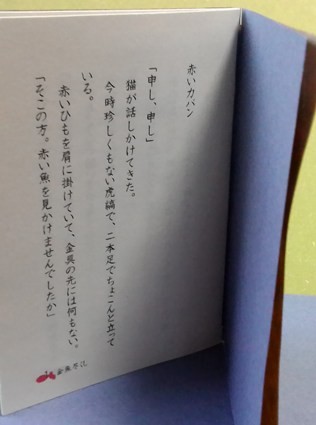 赤いカバン
「申し、申し」
猫が話しかけてきた。
今時珍しくもない虎縞で、二本足でちょこんと立って
いる。
赤いひもを肩に掛けていて、金具の先には何もない。
「そこの方。赤い魚を見かけませんでしたか」
金魚尽くし